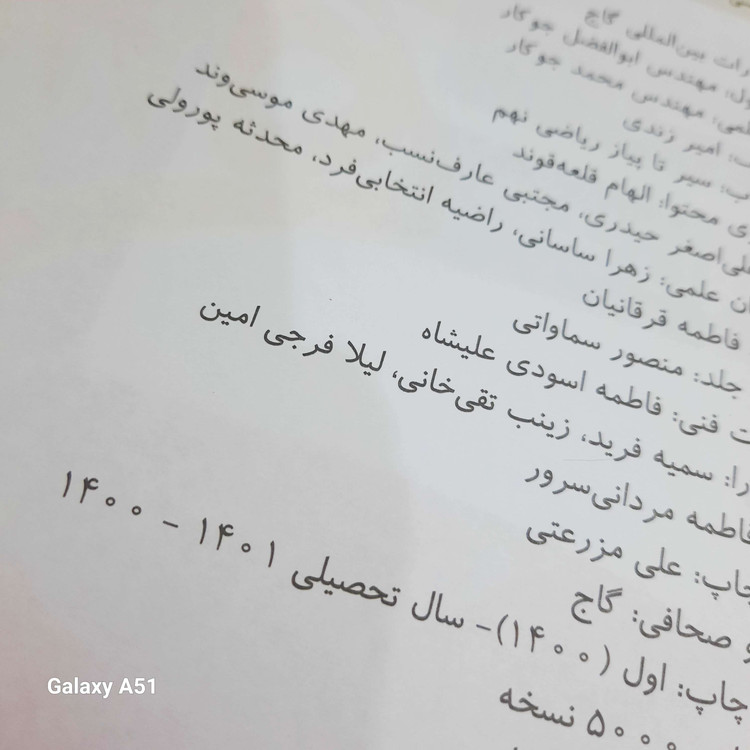 بین‌المللی گاج
مهندس ابوالفضل جوکار
مهندس محمد جوکار
امیر زندی
سیر تا پیاز ریاضی نهم
محتوا: الهام قلعه‌قوند
حیدری، مجتبی عارف‌نسب، مهدی موسی‌وند
علمی: زهرا ساسانی، راضیه انتخابی‌فرد، محدثه پورولی
فاطمه قرقانیان
جلد: منصور سماواتی
فنی: فاطمه اسودی علیشاه
سمیه فرید، زینب تقی‌خانی، لیلا فرجی امین
فاطمه مردانی‌سرور
چاپ: علی مزرعتی
و صحافی: گاج
چاپ: اول (۱۴۰۰)- سال تحصیلی ۱۴۰۱ - ۱۴۰۰
۵۰۰۰ نسخه
Galaxy A51